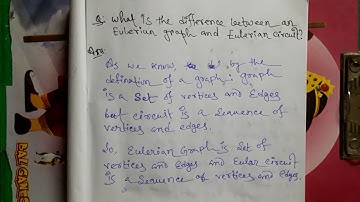 Q. What is the difference between an
Eulerian graph and Eulerian circuit?
Ans:
As we know, by the
defination of a graph: graph
is a set of vertices and Edges
but circuit is a sequence of
vertices and edges.
So, Eulerian Graph is set of
vertices and edges and Eular circuit
is a sequence of vertices and Edges.